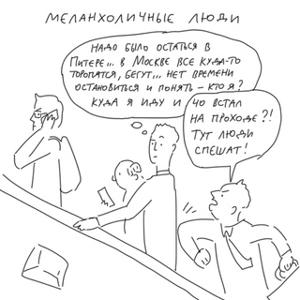 МЕЛАНХОЛИЧНЫЕ ЛЮДИ
НАДО БЫЛО ОСТАТЬСЯ В
ПИТЕРЕ... В МОСКВЕ ВСЕ КУДА-ТО
ТОРОПЯТСЯ, БЕГУТ... НЕТ ВРЕМЕНИ
ОСТАНОВИТЬСЯ И ПОНЯТЬ – КТО Я?
КУДА Я ИДУ И
ЧО ВСТАЛ
НА ПРОХОДЕ?!
ТУТ ЛЮДИ
СПЕШАТ!